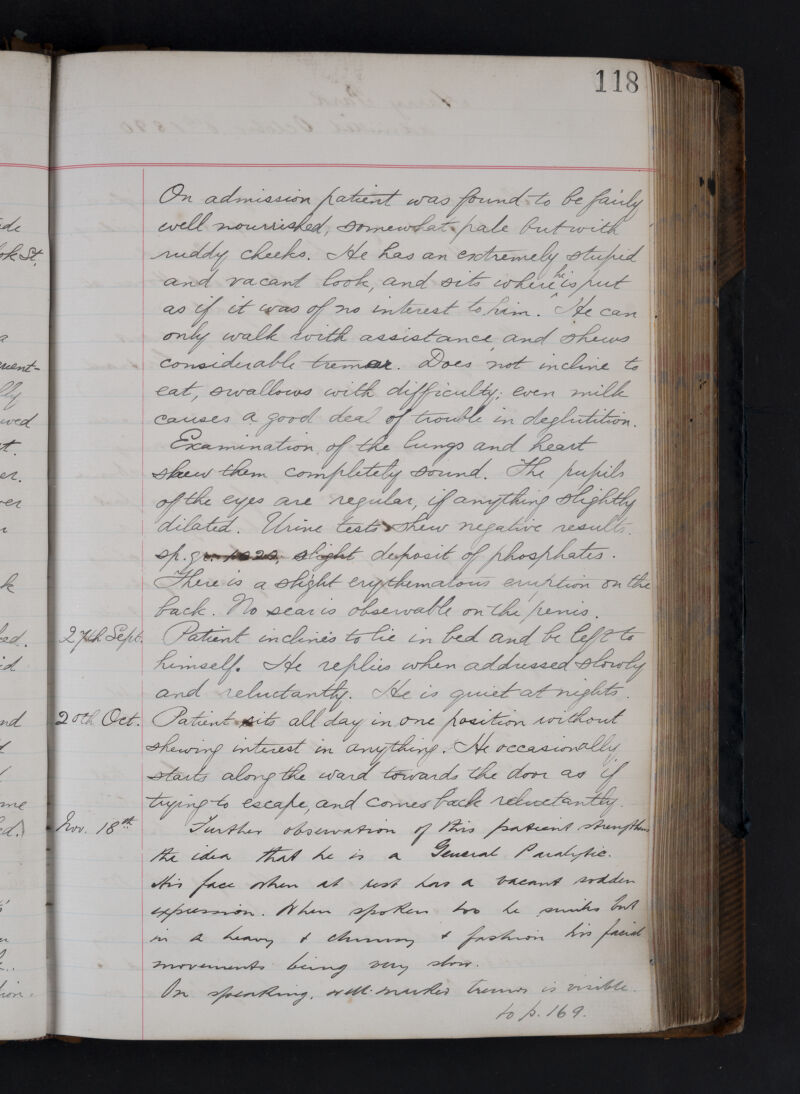 118
On admission patient was found to be fairly
well nourrished, somewhat pale but with
ruddy cheeks. He has an extremely stupid
and vacant look, and sits where he is put
as if it was of no interest to him. He can
only walk with assistance and shews
considerable tremor. Does not incline to
eat, swallows with difficulty; even milk
causes a good deal of trouble in deglutition.
Examination of the lungs and heart
shew them completely sound. The pupils
of the eyes are regular, if anything slightly
dilated. Urine tests shew negative results.
sp. gr. 1022, slight deposit of phosphates.
There is a slight erythematous eruption on the
back. No scar is observable on the penis.
27th Sept. Patient inclines to lie in bed and be left to
himself. He replies when addressed slowly
and reluctantly. He is quiet at nights.
20th Oct. Patient sits all day in one position without
shewing interest in anything. He occasionally
starts along the ward towards the door as if
trying to escape, and comes back reluctantly.
Nov. 18th Further observation of this patient strengthens
the idea that he is a General Paralytic.
His face when at rest has a vacant sodden
expression. When spoken too he smiles but
in a heavy & clumsy & fashion his facial
movements being very slow.
On speaking, well-marked tremor is visible.
to p. 169.